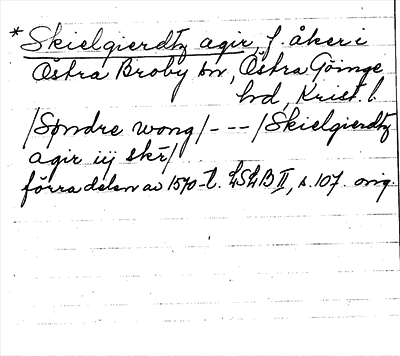 * Skielgierdtz agir, f. åker i
Östra Broby sn, Östra Göinge
hd, Krist. l.
/Søndre wong/ --- /Skielgierdtz
agir iij skr/
förra delen av 1570-t. LSLB II, s. 107. orig.